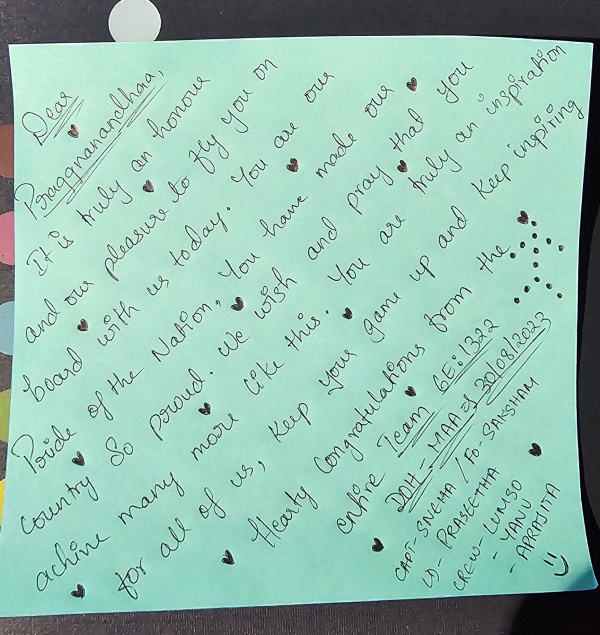 Dear
Praggnanandhaa,
It is truly an honour
and our pleasure to fly you on
board with us today. You are our
Pride of the Nation, You have made our
country so proud. We wish and pray that you
achive many more like this. You are truly an inspiration
for all of us, keep your game up and keep inspiring
Hearty Congratulations from the
entire Team 6E:1322
DOH - MAA 30/08/2023
CAPT- SNEHA / FO- SAKSHAM
LD- PRASEETHA
CREW- LUNISO
- YANU
- APRAJITA